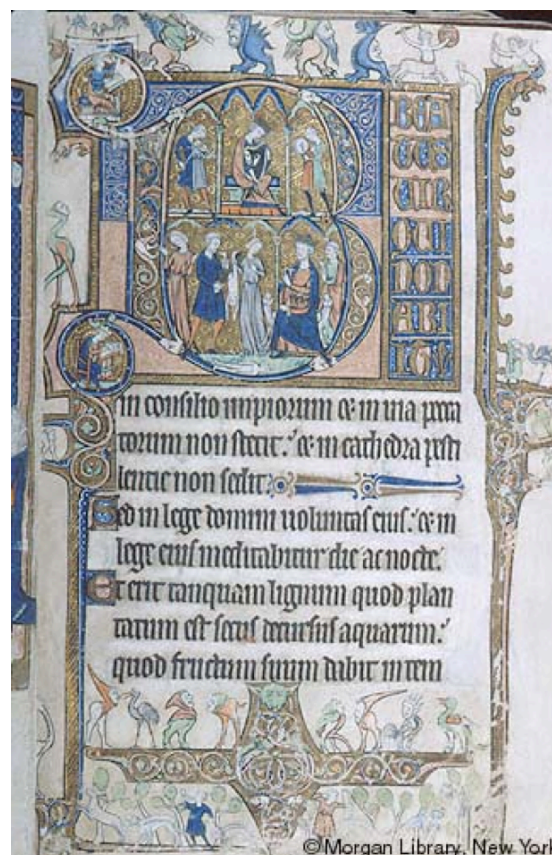 BEA
TUS
UIR
QUI
NON
ABI
in consilio impiorum & in uia pecca
torum non stetit. & in cathedra pesti
lentie non sedit.
Sed in lege domini uoluntas eius. & in
lege eius meditabitur die ac nocte.
Et erit tanquam lignum quod plan
tatum est secus decursus aquarum.
quod fructum suum dabit in tem
©Morgan Library, New York